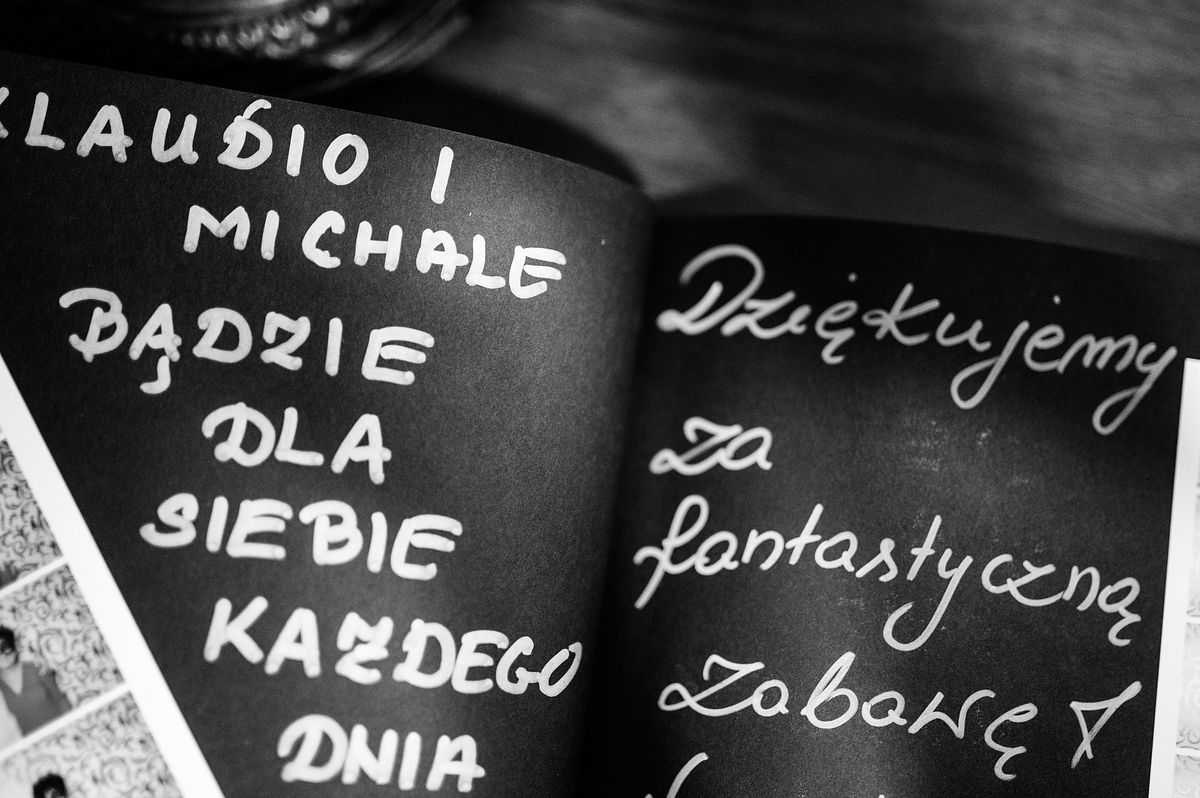 KLAUDIO I
MICHALE
BĄDZIE
DLA
SIEBIE
KAŻDEGO
DNIA
Dziękujemy
za
fantastyczną
zabawę